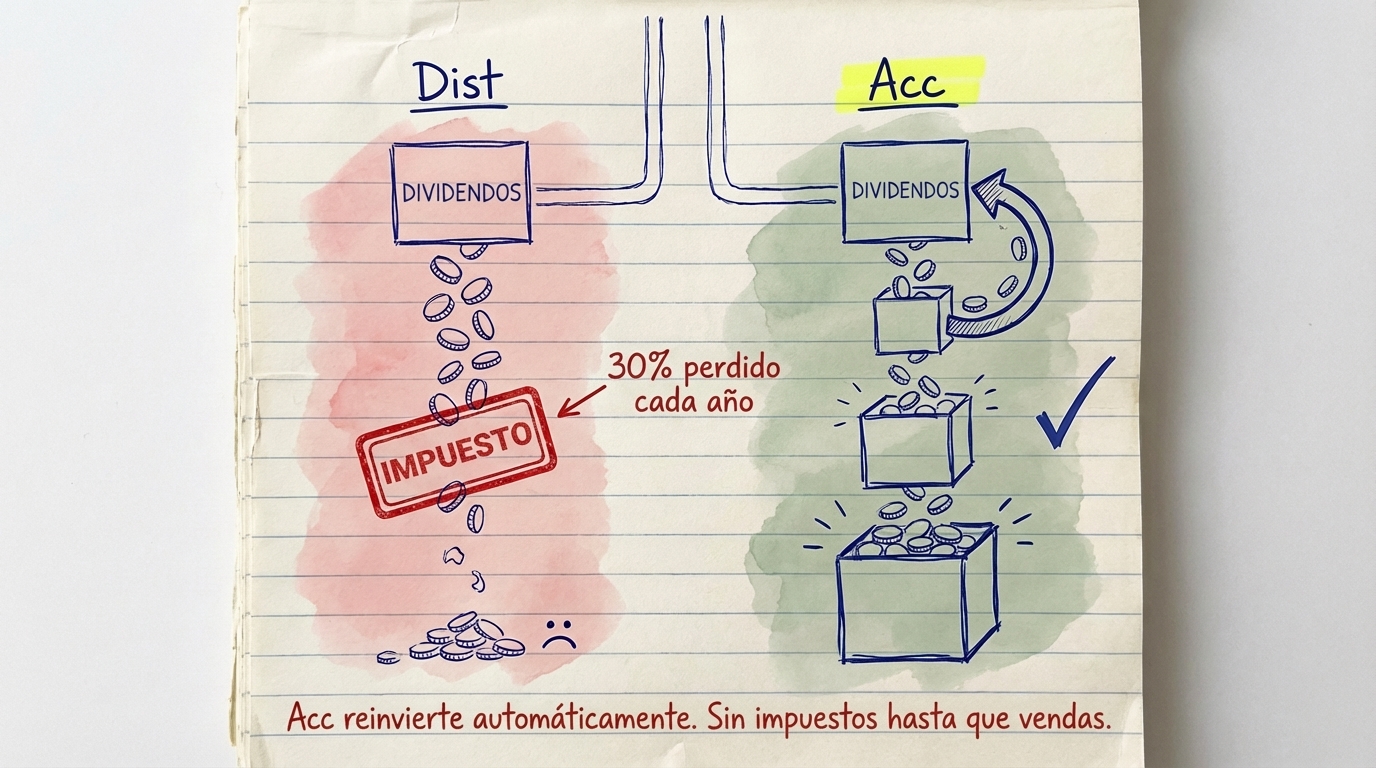 Dist
Acc
DIVIDENDOS
DIVIDENDOS
30% perdido
cada año
IMPUESTO
Acc reinvierte automáticamente. Sin impuestos hasta que vendas.